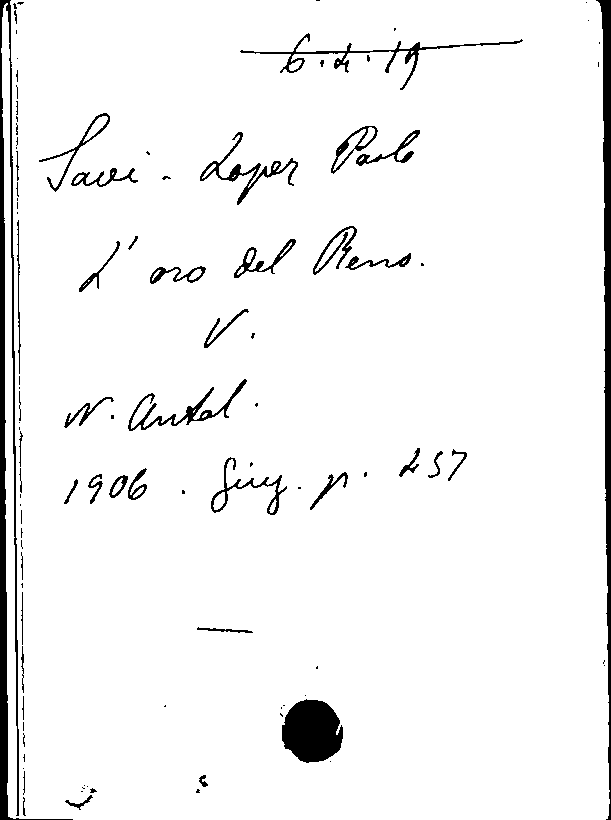 6.4.19
Savi-Lopez Paolo
L'oro del Reno.
V.
N. Antol.
1906. Giug. p. 257